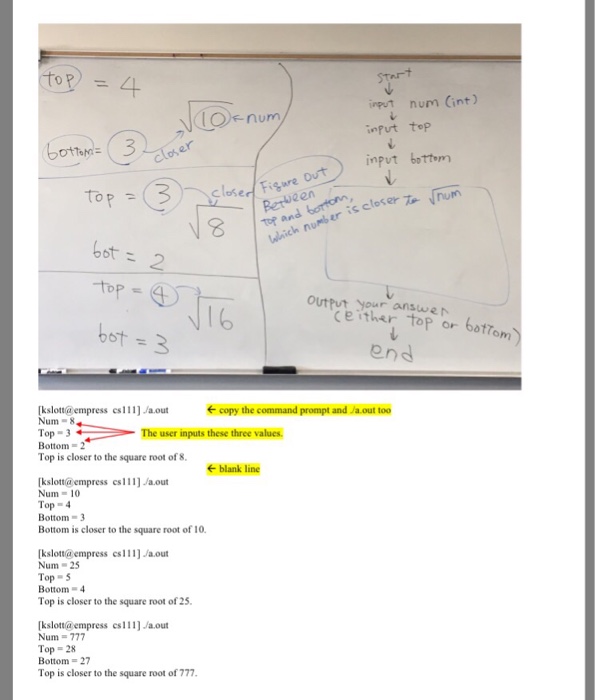 top = 4
√10 ←num
bottom= 3 closer
top = 3 closer
√8
bot = 2
top = 4
√16
bot = 3
Figure out
Between
top and bottom,
which number is closer to √num
Start
input num (int)
input top
input bottom
output your answer
(either top or bottom)
end
[kslott@empress cs111] ./a.out ← copy the command prompt and ./a.out too
Num = 8
Top = 3 The user inputs these three values.
Bottom = 2
Top is closer to the square root of 8.
← blank line
[kslott@empress cs111] ./a.out
Num = 10
Top = 4
Bottom = 3
Bottom is closer to the square root of 10.
[kslott@empress cs111] ./a.out
Num = 25
Top = 5
Bottom = 4
Top is closer to the square root of 25.
[kslott@empress cs111] ./a.out
Num = 777
Top = 28
Bottom = 27
Top is closer to the square root of 777.